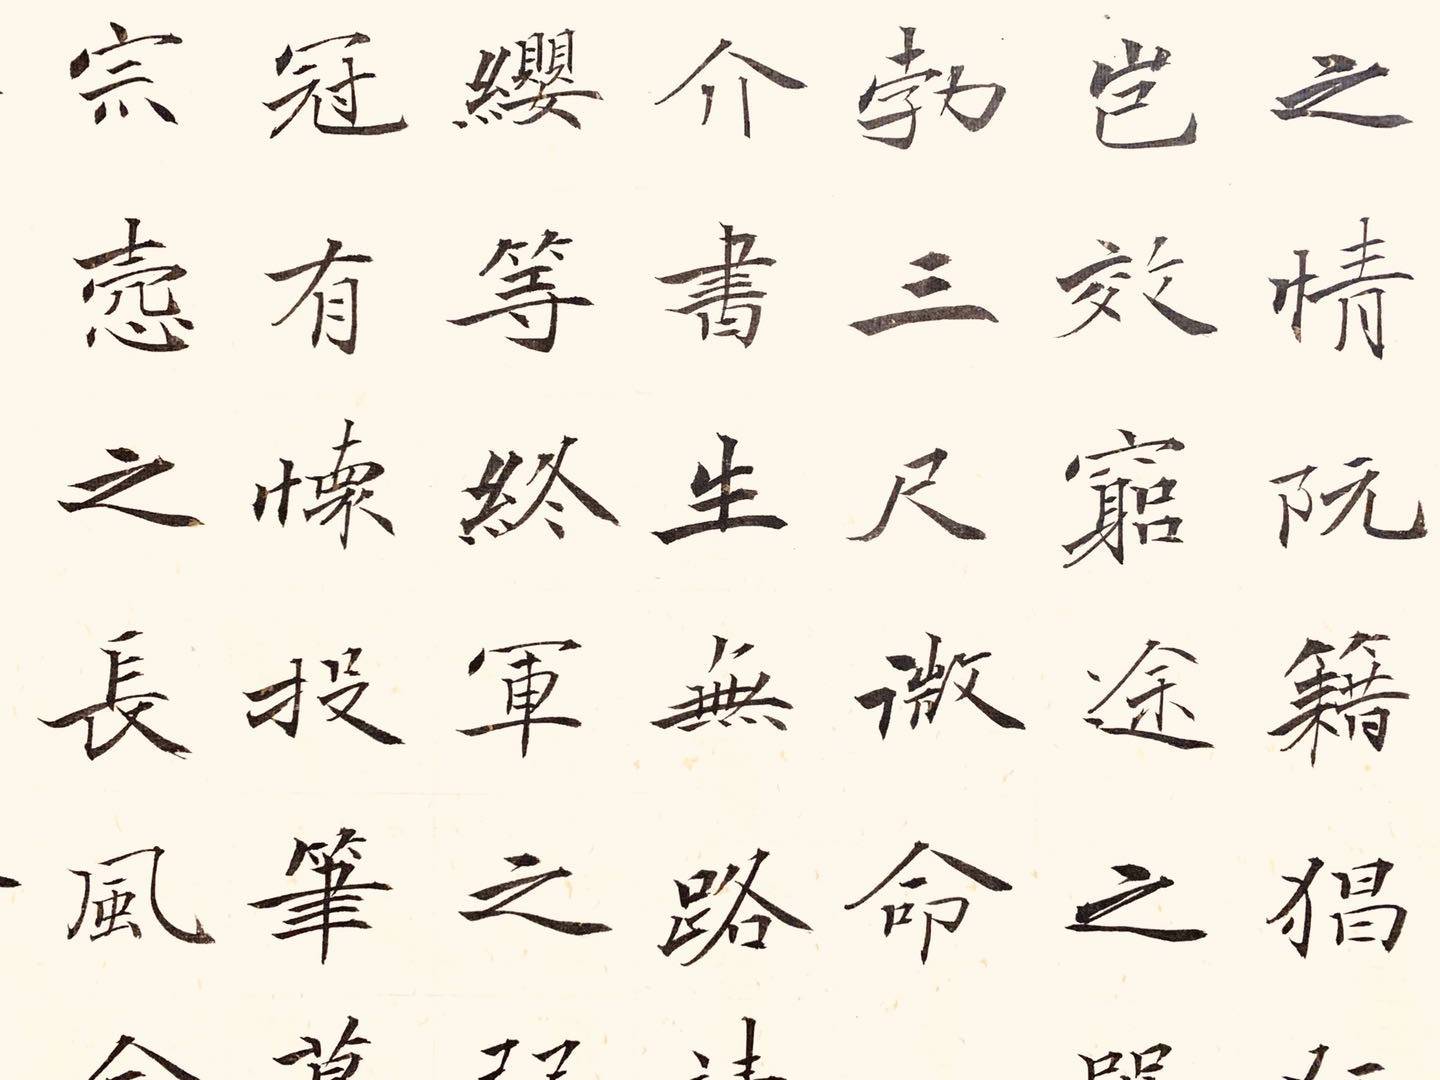 之情阮籍猖
豈效竆途之
勃三尺微命
介書生無路
纓等終軍之
冠有懷投筆
宗悫之長風